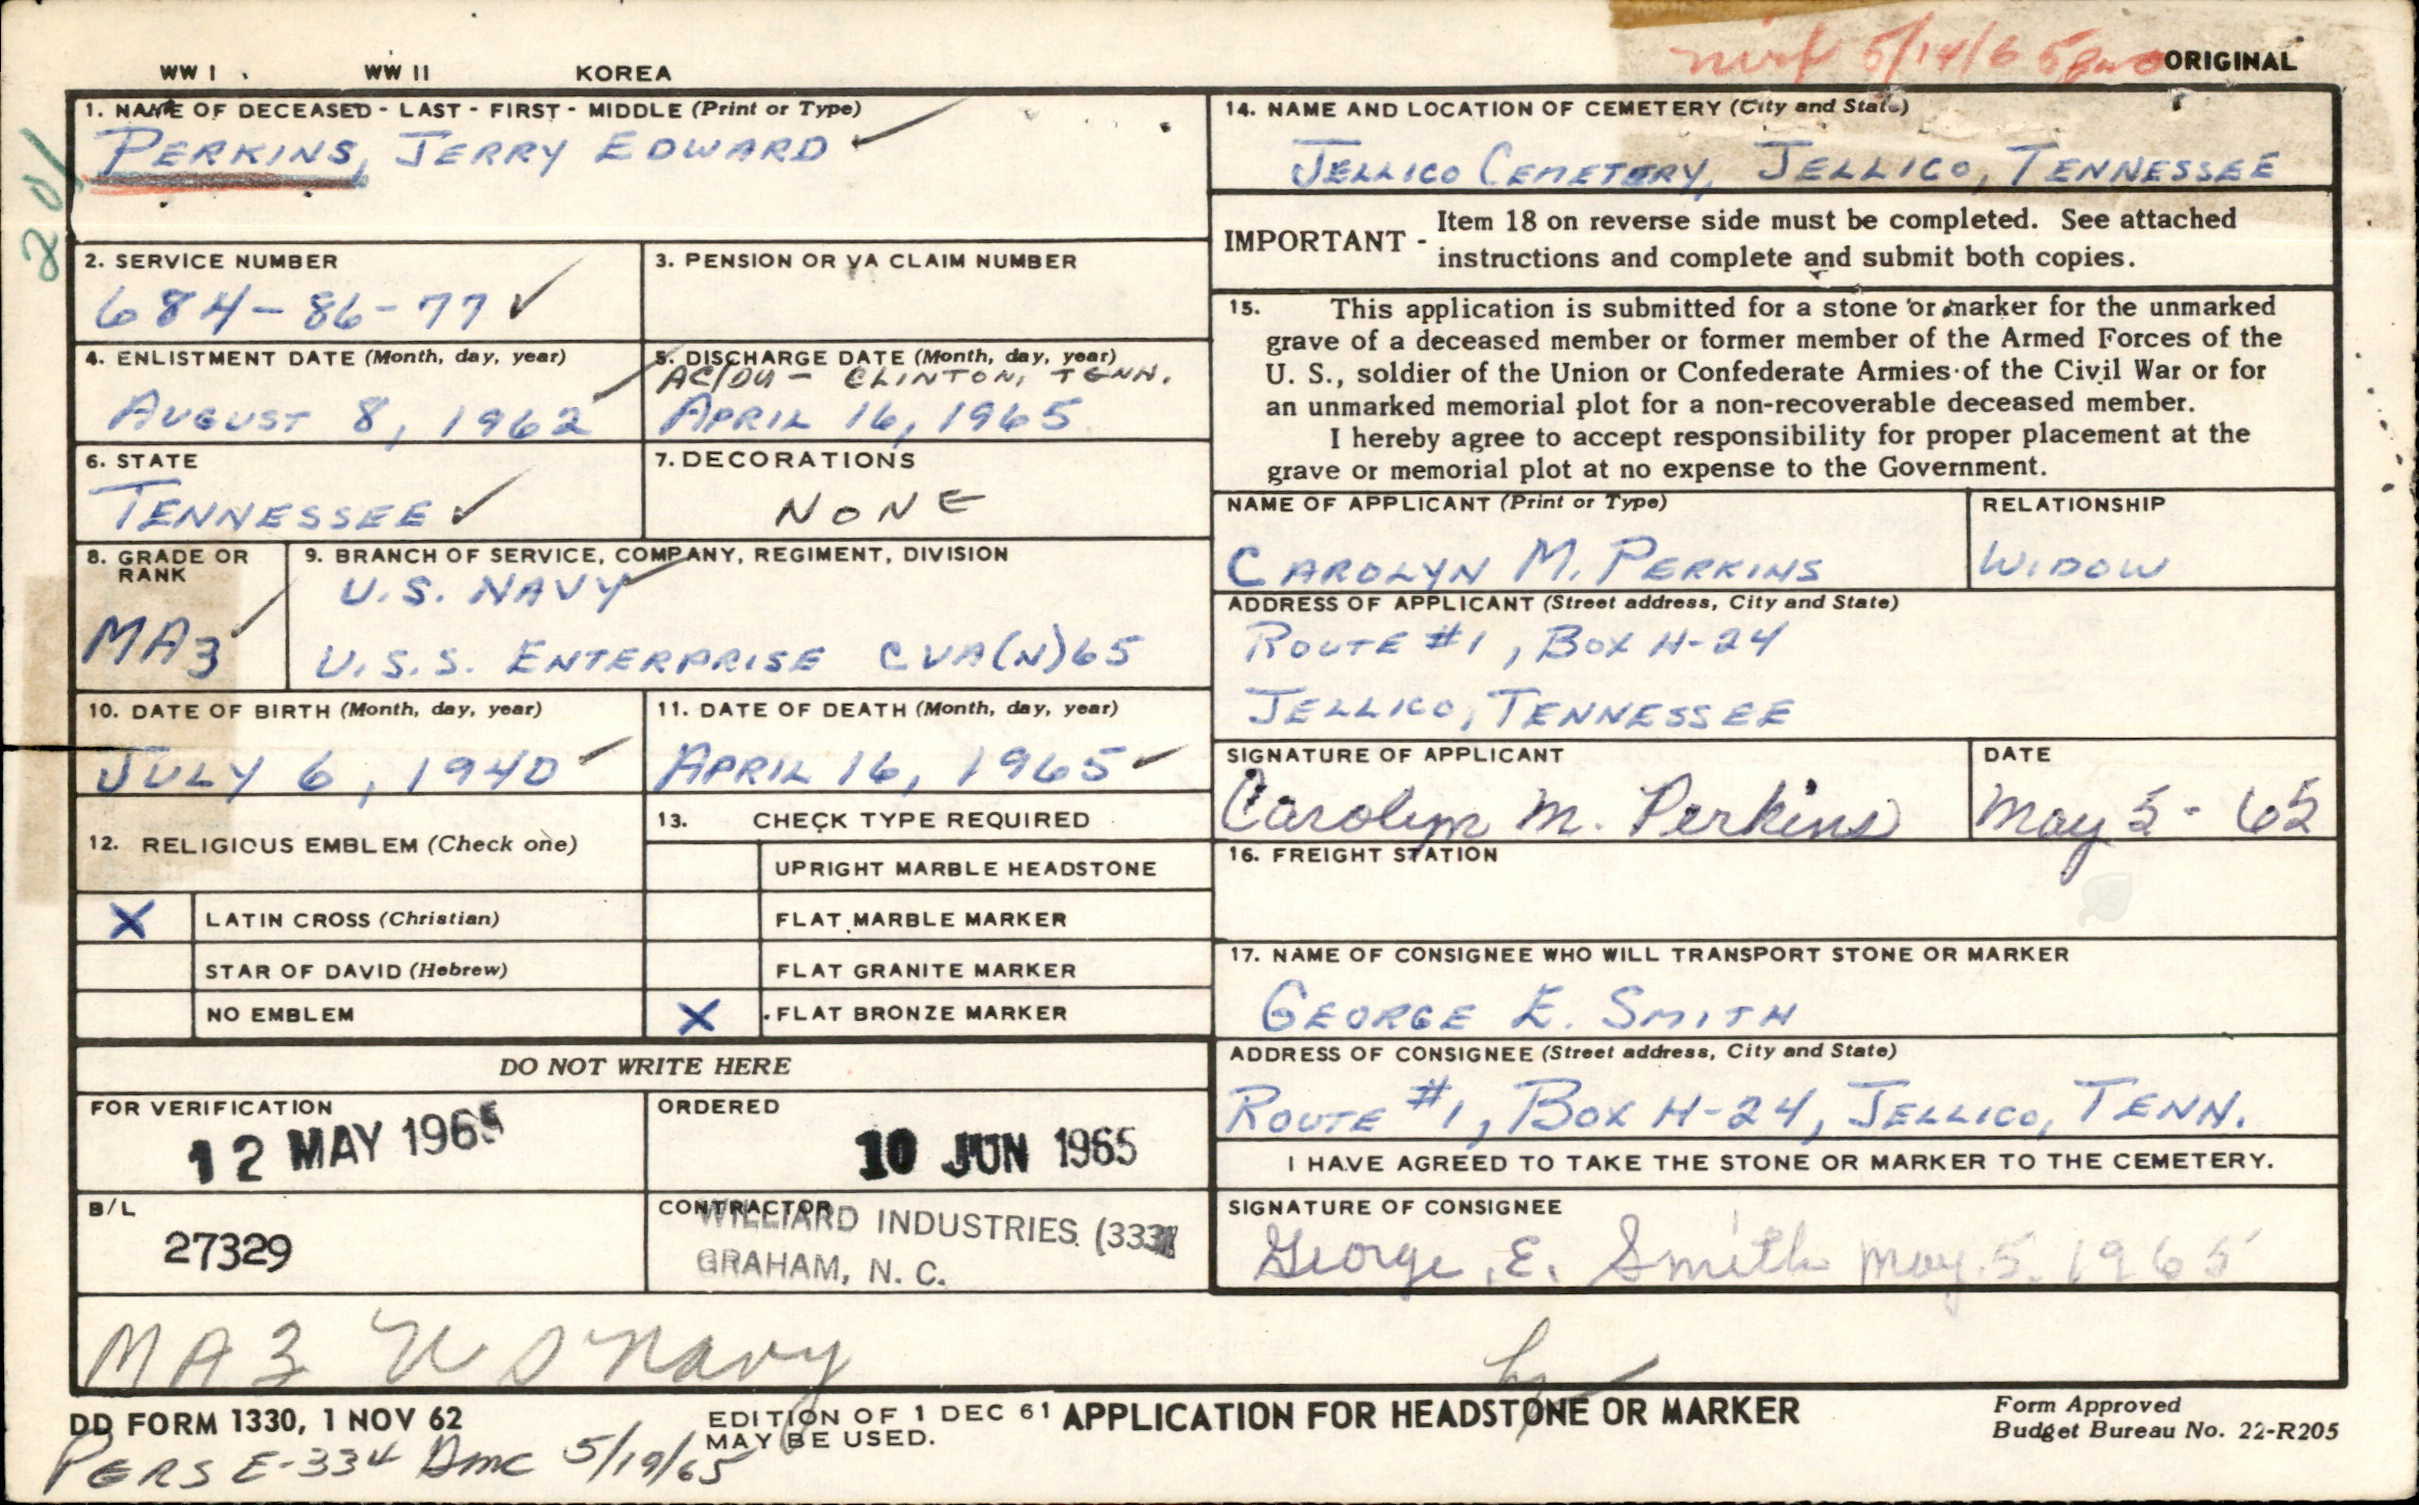 WW I WW II KOREA
5/14/65 ORIGINAL
201
1. NAME OF DECEASED - LAST - FIRST - MIDDLE (Print or Type)
PERKINS, JERRY EDWARD
2. SERVICE NUMBER
684-86-77
3. PENSION OR VA CLAIM NUMBER
4. ENLISTMENT DATE (Month, day, year)
AUGUST 8, 1962
5. DISCHARGE DATE (Month, day, year)
AC/DU - CLINTON, TENN.
APRIL 16, 1965
6. STATE
TENNESSEE
7. DECORATIONS
NONE
8. GRADE OR
RANK
MA3
9. BRANCH OF SERVICE, COMPANY, REGIMENT, DIVISION
U.S. NAVY
U.S.S. ENTERPRISE CVA(N)65
10. DATE OF BIRTH (Month, day, year)
JULY 6, 1940
11. DATE OF DEATH (Month, day, year)
APRIL 16, 1965
12. RELIGIOUS EMBLEM (Check one)
X LATIN CROSS (Christian)
STAR OF DAVID (Hebrew)
NO EMBLEM
13. CHECK TYPE REQUIRED
UPRIGHT MARBLE HEADSTONE
FLAT MARBLE MARKER
FLAT GRANITE MARKER
X FLAT BRONZE MARKER
DO NOT WRITE HERE
FOR VERIFICATION
12 MAY 1965
ORDERED
10 JUN 1965
B/L
27329
CONTRACTOR
WILLIARD INDUSTRIES (333)
GRAHAM, N. C.
14. NAME AND LOCATION OF CEMETERY (City and State)
JELLICO CEMETERY, JELLICO, TENNESSEE
IMPORTANT - Item 18 on reverse side must be completed. See attached
instructions and complete and submit both copies.
15. This application is submitted for a stone or marker for the unmarked
grave of a deceased member or former member of the Armed Forces of the
U. S., soldier of the Union or Confederate Armies of the Civil War or for
an unmarked memorial plot for a non-recoverable deceased member.
I hereby agree to accept responsibility for proper placement at the
grave or memorial plot at no expense to the Government.
NAME OF APPLICANT (Print or Type)
CAROLYN M. PERKINS
RELATIONSHIP
WIDOW
ADDRESS OF APPLICANT (Street address, City and State)
ROUTE #1, BOX H-24
JELLICO, TENNESSEE
SIGNATURE OF APPLICANT
Carolyn M. Perkins
DATE
May 5 - 65
16. FREIGHT STATION
17. NAME OF CONSIGNEE WHO WILL TRANSPORT STONE OR MARKER
GEORGE E. SMITH
ADDRESS OF CONSIGNEE (Street address, City and State)
ROUTE #1, BOX H-24, JELLICO, TENN.
I HAVE AGREED TO TAKE THE STONE OR MARKER TO THE CEMETERY.
SIGNATURE OF CONSIGNEE
George E. Smith May 5, 1965
MA3 US Navy
DD FORM 1330, 1 NOV 62
EDITION OF 1 DEC 61
MAY BE USED.
APPLICATION FOR HEADSTONE OR MARKER
Form Approved
Budget Bureau No. 22-R205
PERS E-334 Dmc 5/19/65